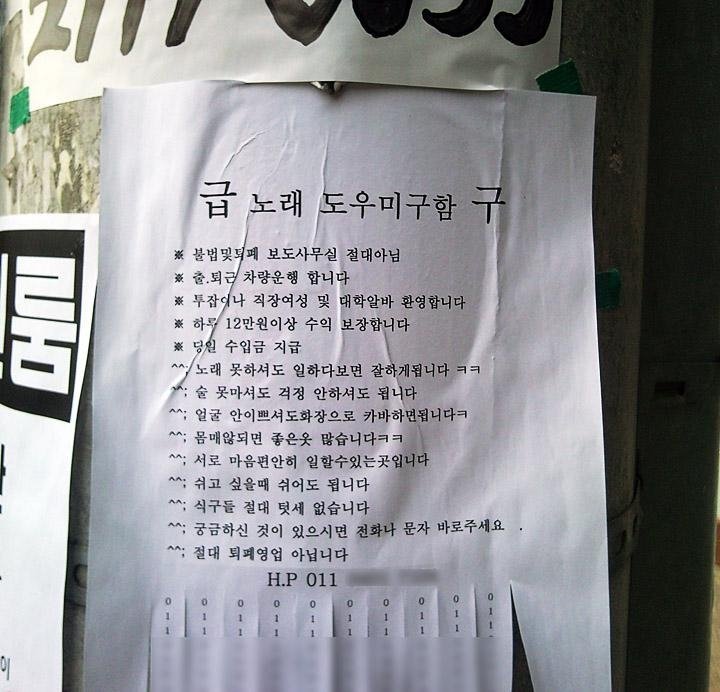 급 노래 도우미구함 구
※ 불법및퇴폐 보도사무실 절대아님
※ 출.퇴근 차량운행 합니다
※ 투잡이나 직장여성 및 대학알바 환영합니다
※ 하루 12만원이상 수익 보장합니다
※ 당일 수입금 지급
^^; 노래 못하셔도 일하다보면 잘하게됩니다 ㅋㅋ
^^; 술 못마셔도 걱정 안하셔도 됩니다
^^; 얼굴 안이쁘셔도화장으로 카바하면됩니다ㅋ
^^; 몸매않되면 좋은옷 많습니다ㅋㅋ
^^; 서로 마음편안히 일할수있는곳입니다
^^; 쉬고 싶을때 쉬어도 됩니다
^^; 식구들 절대 텃세 없습니다
^^; 궁금하신 것이 있으시면 전화나 문자 바로주세요 .
^^; 절대 퇴폐영업 아닙니다
H.P 011
0 0 0 0 0 0 0 0 0 0
1 1 1 1 1 1 1 1 1 1
1 1 1 1 1 1 1 1 1
룸